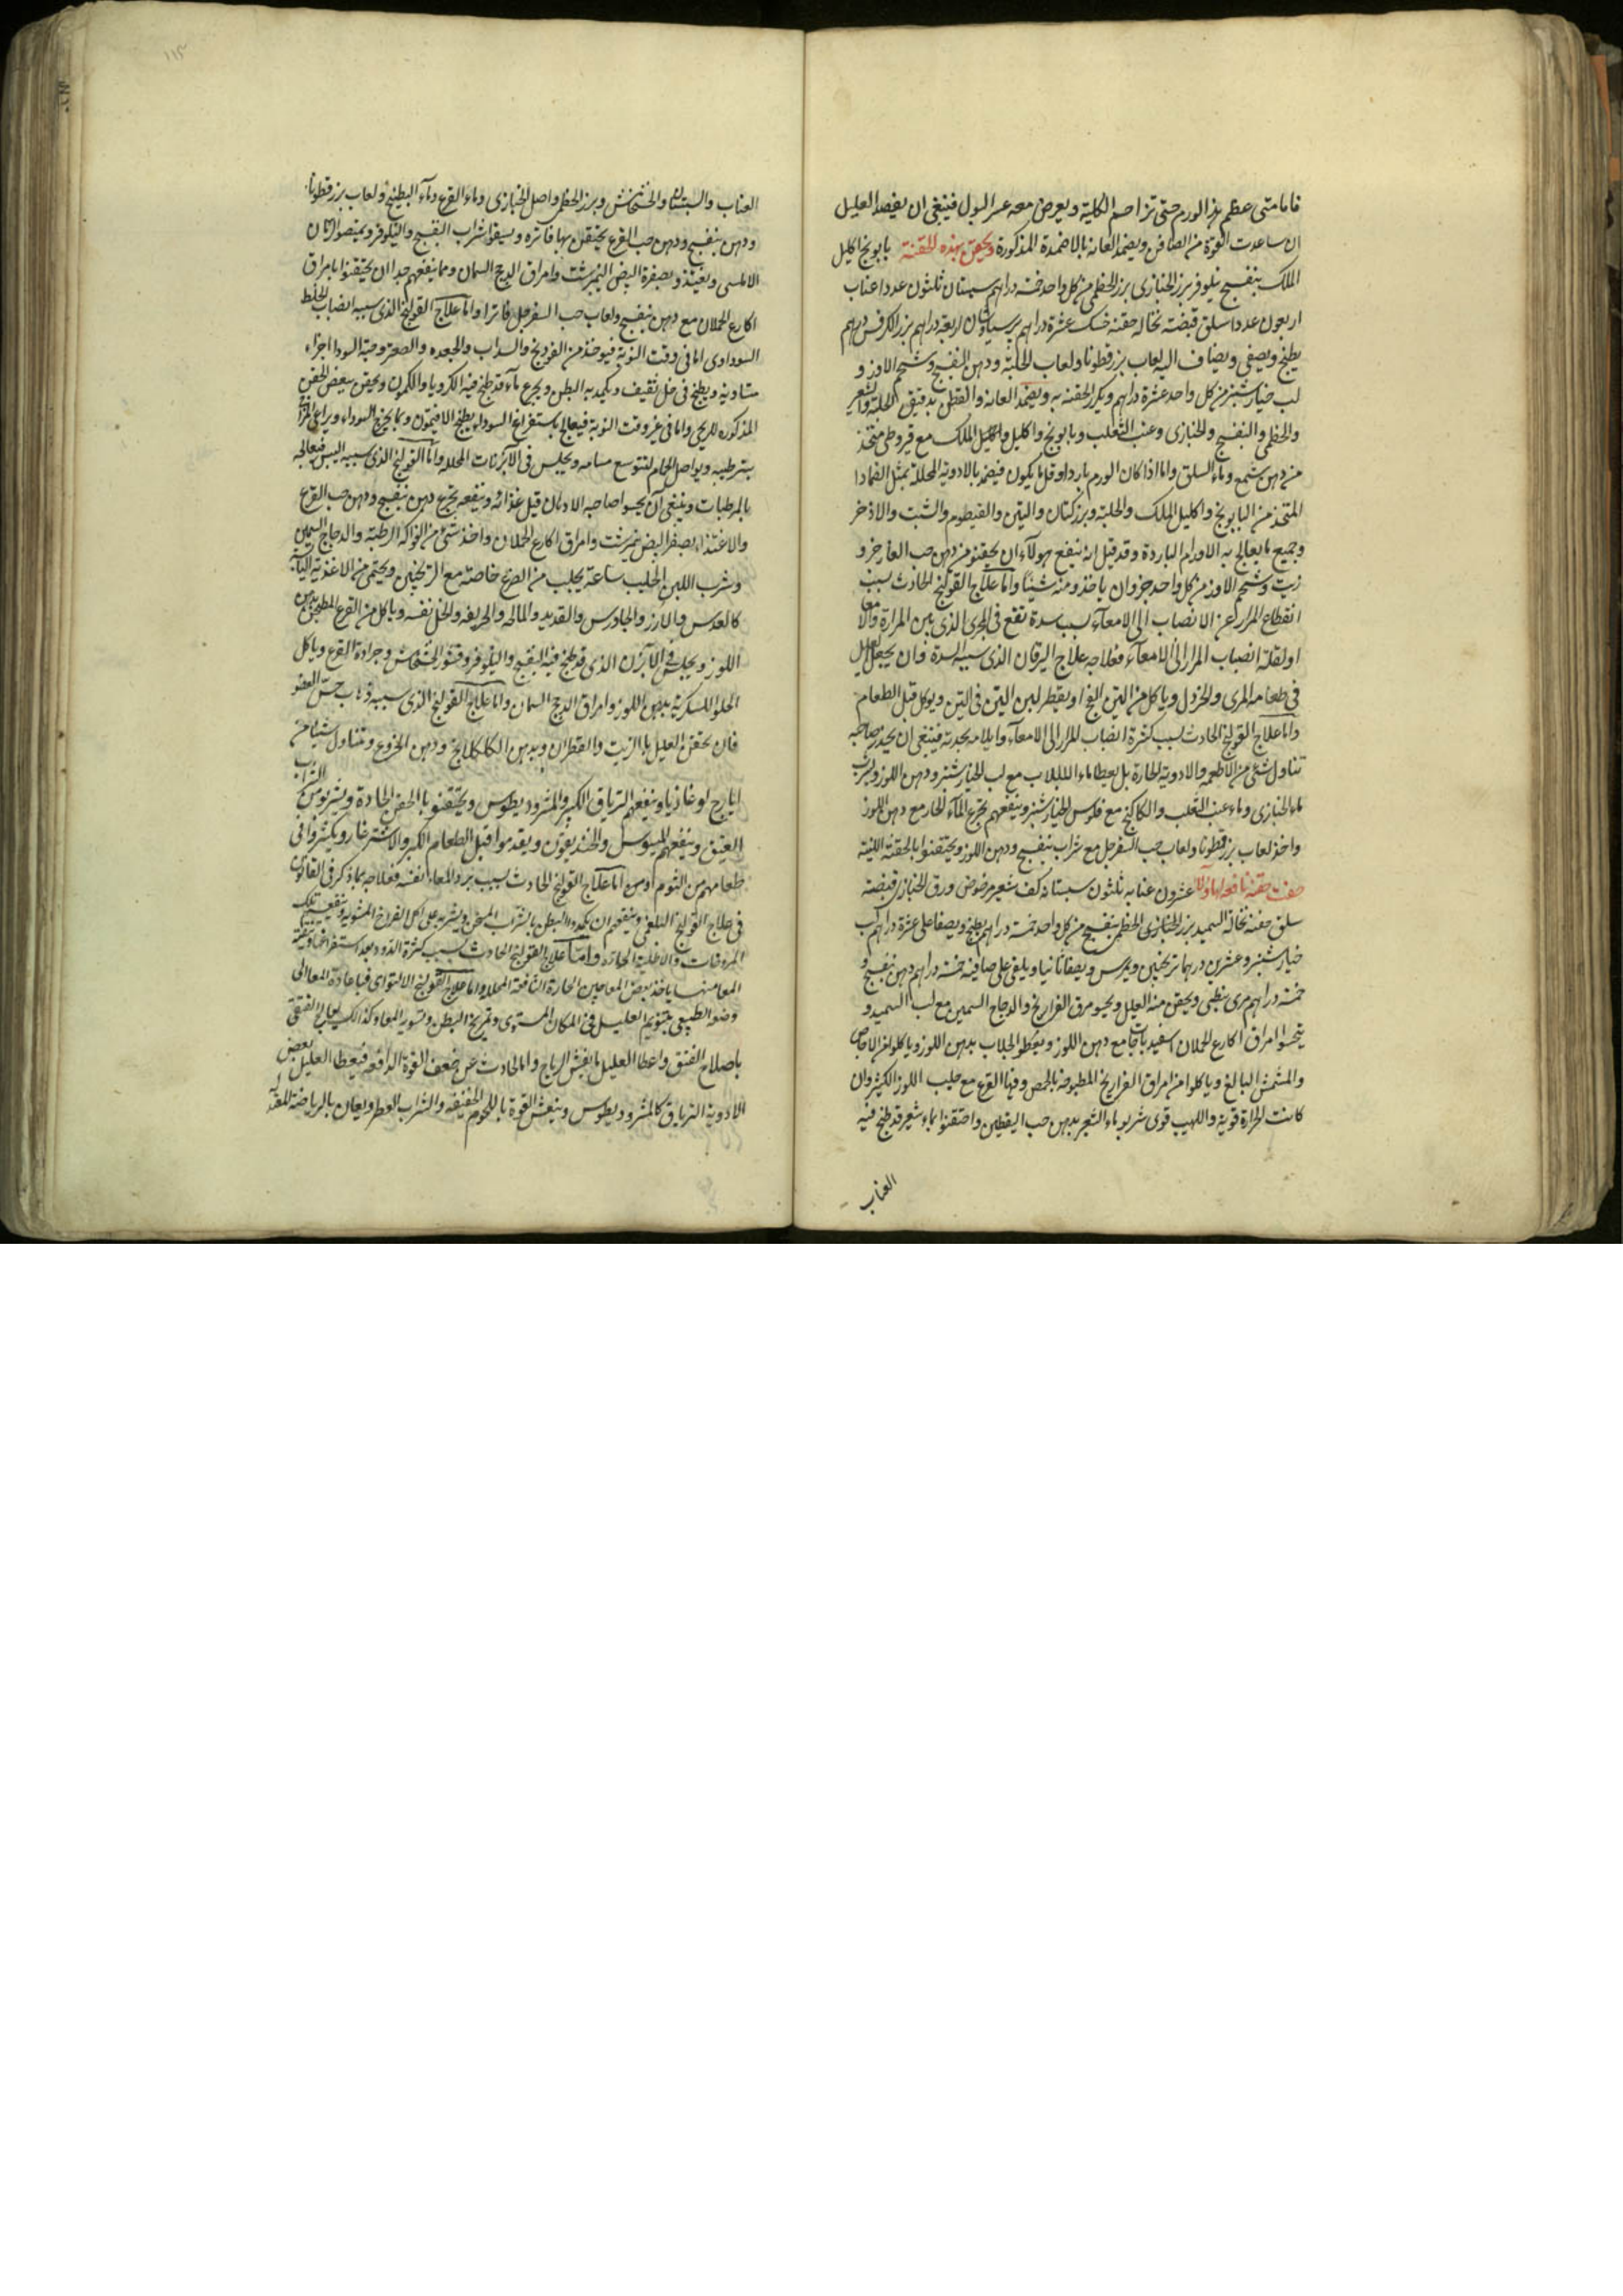 فاما متى عظم هذا الورم حتى تزاحم الكلية ويعرض معه عسر البول فينبغى ان يفصد العليل
ان ساعدت القوة من الصافن ويضمد العانة بالاضمدة المذكورة ويحقن بهذه الحقنة بابونج اكليل
الملك بنفسج نيلوفر بزر الخبازى بزر الخطمى من كل واحد خمسة دراهم سبستان ثلثون عددا عناب
اربعون عددا سلق قبضة نخالة حفنة خسك عشرة دراهم برسياوشان اربعة دراهم بزر الكرفس درهم
يطبخ ويصفى ويضاف اليه لعاب بزر قطونا ولعاب الحلبة ودهن البنفسج وشحم الاوز و
لب خيار شنبر من كل واحد عشرة دراهم ويكرر الحقنة به ويضمد العانة والقطن بدقيق الحلبة والشعير
والخطمى والبنفسج والخبازى وعنب الثعلب وبابونج واكليل واكليل الملك مع قيروطى متخذ
من دهن شمع وماء السلق واما اذا كان الورم باردا وقل ما يكون فيضمد بالادوية المحللة بمثل الضماد ا
المتخذ من البابونج واكليل الملك والحلبة وبزر كتان والتين والقيطوم والشبت والاذخر
وجميع ما يعالج به الاورام الباردة وقد قيل انه ينفع هولاء ان يحقنو من دهن حب الغار جزو
زيت وشحم الاوز من كل واحد جزو ان ياخذو منه شيئا واما علاج القولنج الحادث بسبب
انقطاع المرار عن الانصباب الى الامعاء بسبب سدة تقع فى المجرى الذى بين المرارة والامعا
او لقلة انصباب المرار الى الامعاء فعلاجه علاج اليرقان الذى سببه السدة وان يجعل العليل
فى طعامه المرى والخردل وياكل من التين الفج او يقطر لبن التين فى التين ويوكل قبل الطعام
واما علاج القولنج الحادث بسبب كثرة انصباب المرار الى الامعاء وايلامه بحدته فينبغى ان يحذر صاحبه
تناول شئ من الاطعمه والادوية الحارة بل يعطا ماء اللبلاب مع لب الخيار شنبر ودهن اللوز ويشرب
ماء الخبازى وماء عنب الثعلب والكاكنج مع فلوس الخيار شنبر وينفعهم تجرع الماء الحار مع دهن اللوز
واخذ لعاب بزر قطونا ولعاب حب السفرجل مع شراب بنفسج ودهن اللوز ويحتقنوا بالحقنة اللينة
صفت حقنة نافعة لهاولا عشرون عنابه ثلثون سبستانه كف شعير مرضوض ورق الخبازى قبضة
سلق حفنة نخالة السميد بزر الخبازى الخطمى بنفسج من كل واحد خمسة دراهم يطبخ ويصفا على عشرة دراهم لب
خيار شنبر وعشرين درهما ترنجبين ويمرس ويصفا ثانيا ويلقى على صافيه خمسة دراهم دهن بنفسج و
خمسة دراهم مرى نبطى ويحقن منه العليل ويحسو مرق الفراريخ والدجاج السمين مع لب السميد و
يتحسوا امراق اكارع الحملان اسفيدباجات مع دهن اللوز ويعطو الجلاب بدهن اللوز وياكلو من الاجاص
والمشمش البالغ وياكلوا من امراق الفراريخ المطبوخة بالحمص وفيها القرع مع حليب اللوز الكثير وان
كانت الحرارة قوية واللهيب قوى شربو ماء الشعير بدهن حب اليقطين واحتقنوا بماء شعير قد طبخ فيه
العناب
العناب والسبستان والخشخاش وبزر الخطمى واصل الخبازى وماء القرع وماء البطيخ ولعاب بزر قطونا
ودهن بنفسج ودهن حب القرع يحتقن بها فاتره ويسقوا شراب البنفسج والنيلوفر ويمتصوا الرمان
الاملسى ويغتذو بصفرة البيض النيمبرشت وامراق الدجج السمان ومما ينفعهم جدا ان يحتقنوا بامراق
اكارع الحملان مع دهن بنفسج ولعاب حب السفرجل فاترا واما علاج القولنج الذى سببه انصباب الخلط
السوداوى اما فى وقت النوبة فيوخذ من الفودنج والسداب والجعده والصعتر وحبة السودا اجزاء
متساوية ويطبخ فى خل ثقيف ويكمد به البطن ويجرع ماء قد طبخ فيه الكرويا والكمون ويحقن ببعض الحقن
المذكوره للريحى واما فى غير وقت النوبة فيعالج باستفراغ السوداء بطبخ الافتيمون وبما يخرج السوداء ويراعى المزاج
بترطيبه ويواصل الحمام لتتوسع مسامه ويجلس فى الابزنات المحلله واما القولنج الذى سببه اليبس فيعالج
بالمرطبات وينبغى ان يحسوا صاحبه الادهان قبل غذائه وينفعه تجرع دهن بنفسج ودهن حب القرع
والاغتذاء بصفر البيض نيمرشت وامراق اكارع الحملان واخذ شئ من الفواكه الرطبة والدجاج السمين
وشرب اللبن الحليب ساعة يحلب من الضرع خاصة مع الترنجبين ويحتمى من الاغذية اليابسة
كالعدس والارز والجاورس والقديد والمالحه والحريفه والخل نفسه وياكل من القرع المطبخ بدهن
اللوز ويجلس فى الابزن الذى قد طبخ فيه البنفسج والنيلوفر وقشور الخشخاش وجرادة القرع وياكل
الحلوا السكرية بدهن اللوز وامراق الدجج السمان واما علاج القولنج الذى سببه ذهاب حس العضو
فان يحقن العليل بماء الزيت والقطران وبدهن الكلكلانج ودهن الخروع ويتناول شيئا من
ايارج لوغاذيا وينفعهم الترياق الكبير والمثروديطوس ويحتقنو با الحقن الحادة ويشربو من الشراب
العتيق وينفعهم الميسوس والخنديقون ويقدموا قبل الطعام الكبر والاشترغار ويكثروا فى
طعامهم من الثوم اما علاج القولنج الحادث بسبب برد المعاء نفسه فعلاجه بما ذكر فى القانون
فى علاج القولنج البلغمى وينفعهم ان يكمدوا البطن بالشراب المسخن ويشربه على اكل الفراخ المشوية وينفعهم تلك
المروخات والاطلية الحاره واما علاج القولنج الحادث بسبب كثرة الدود بعد استفراغها وتنقية
المعا منها ياخذ بعض المعاجين الحارة النافعة المحلله واما علاج القولنج الالتواى فباعادة المعا الى
وضعه الطبيعى بتنويم العليل فى المكان المستوى وتمريخ البطن وتسوير المعا وكذالك يعالج الفتقى
باصلاح الفتق واعطا العليل ما يفش الرياح واما الحادث عن ضعف القوة الدافعه فيعطا العليل بعض
الادوية الترياق كالمثروديطوس وينعش القوة باللحوم الخفيفه والشراب العطر ويعان بالرياضة المعتدلة